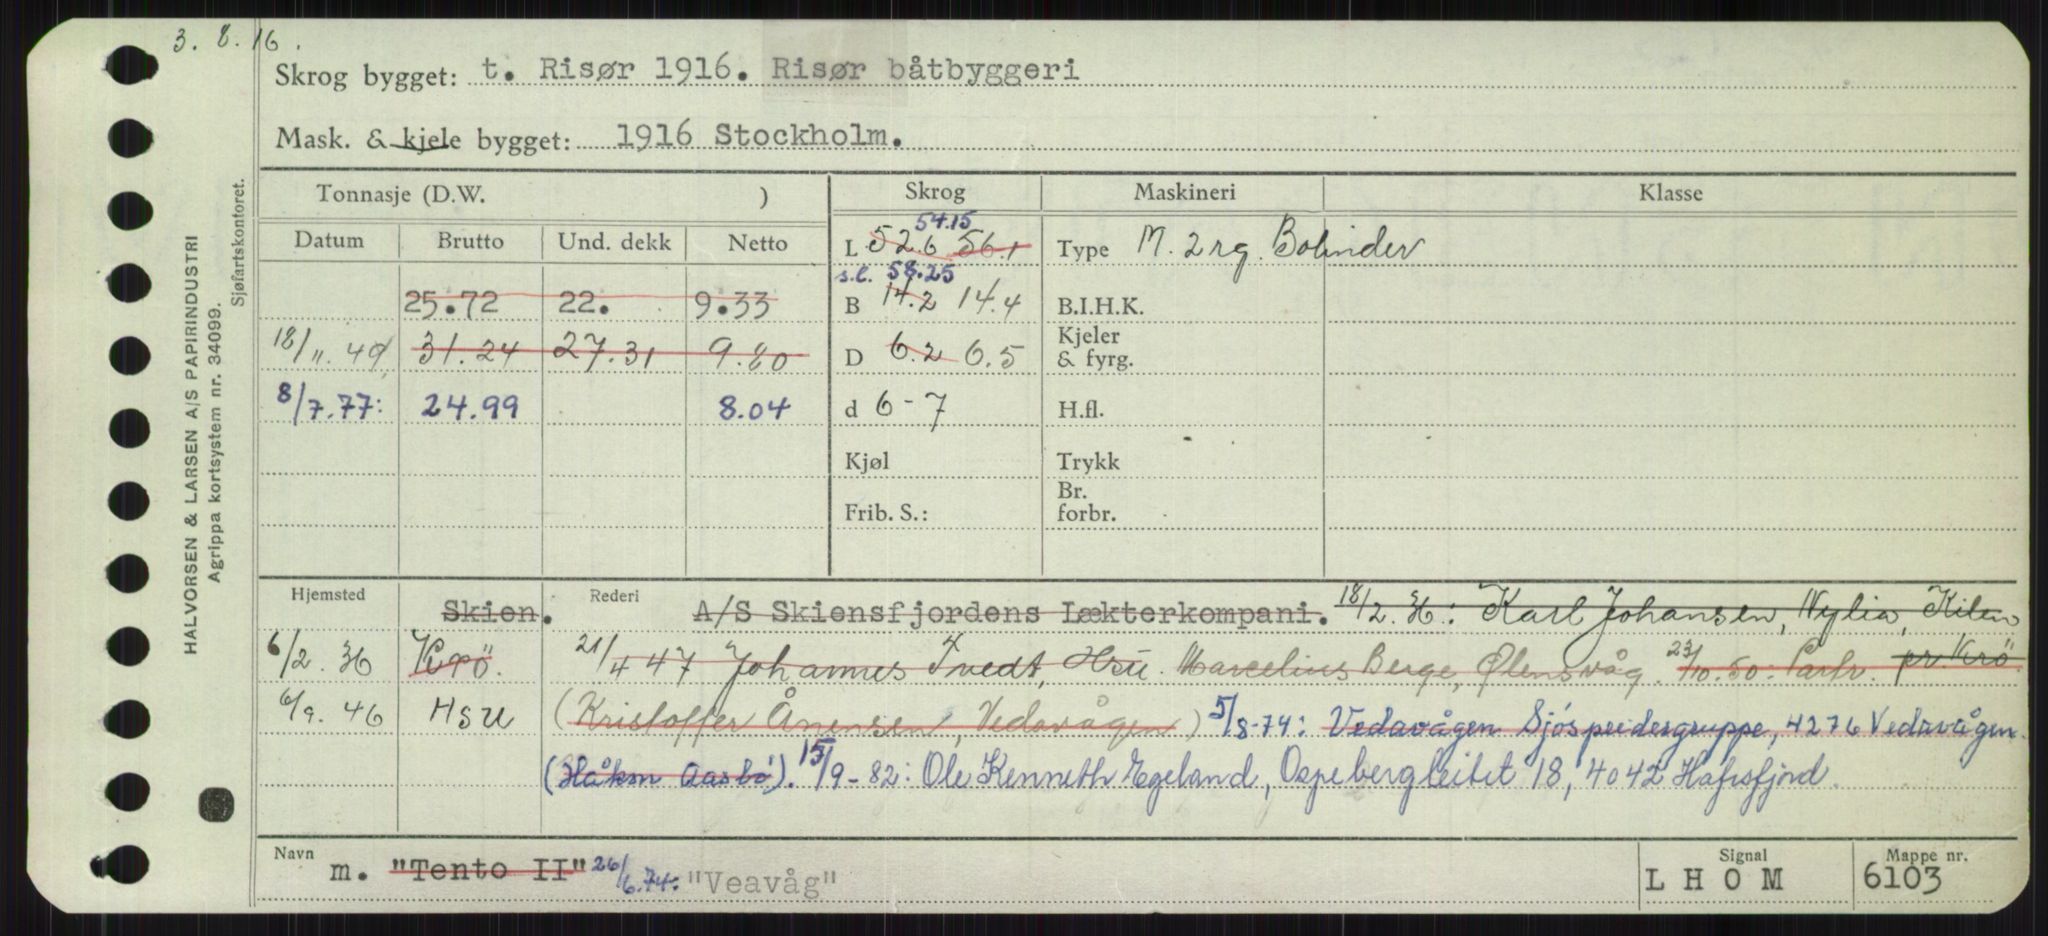 3. 8. 16.
Skrog bygget: t. Risør 1916. Risør båtbyggeri
Mask. & kjele bygget: 1916 Stockholm.
HALVORSEN & LARSEN A/S PAPIRINDUSTRI
Agrippa kortsystem nr. 34099.
Sjøfartskontoret.
Tonnasje (D.W. ) Skrog Maskineri Klasse
Datum Brutto Und. dekk Netto
54.15
L 52.6 56.1 Type M. 2 rg. Bolinder
s.l. 58.25
25.72 22. 9.33 B 14.2 14.4 B.I.H.K.
18/11.49 31.24 27.31 9.80 D 6.2 6.5 Kjeler & fyrg.
8/7.77: 24.99 8.04 d 6-7 H.fl.
Kjøl Trykk
Frib. S.: Br. forbr.
Hjemsted Skien. Rederi A/S Skiensfjordens Lækterkompani. 18/2.36: Karl Johansen, Nylia, Kilen
6/2.36 Krö. 21/4 47 Johannes Tvedt, Hsu. Marcelius Berge, Ølensvåg. 23/10.50: Partr. pr. Krö.
6/9.46 HSU (Kristoffer Ånensen, Vedavågen) 5/8-74: Vedavågen Sjöspeidergruppe, 4276 Vedavågen.
(Håkon Aasbö). 15/9-82: Ole Kenneth Egeland, Ospebergleitet 18, 4042 Hafrsfjord.
Navn m. "Tento II" 26/6.74: "Veavåg" Signal LHOM Mappe nr. 6103